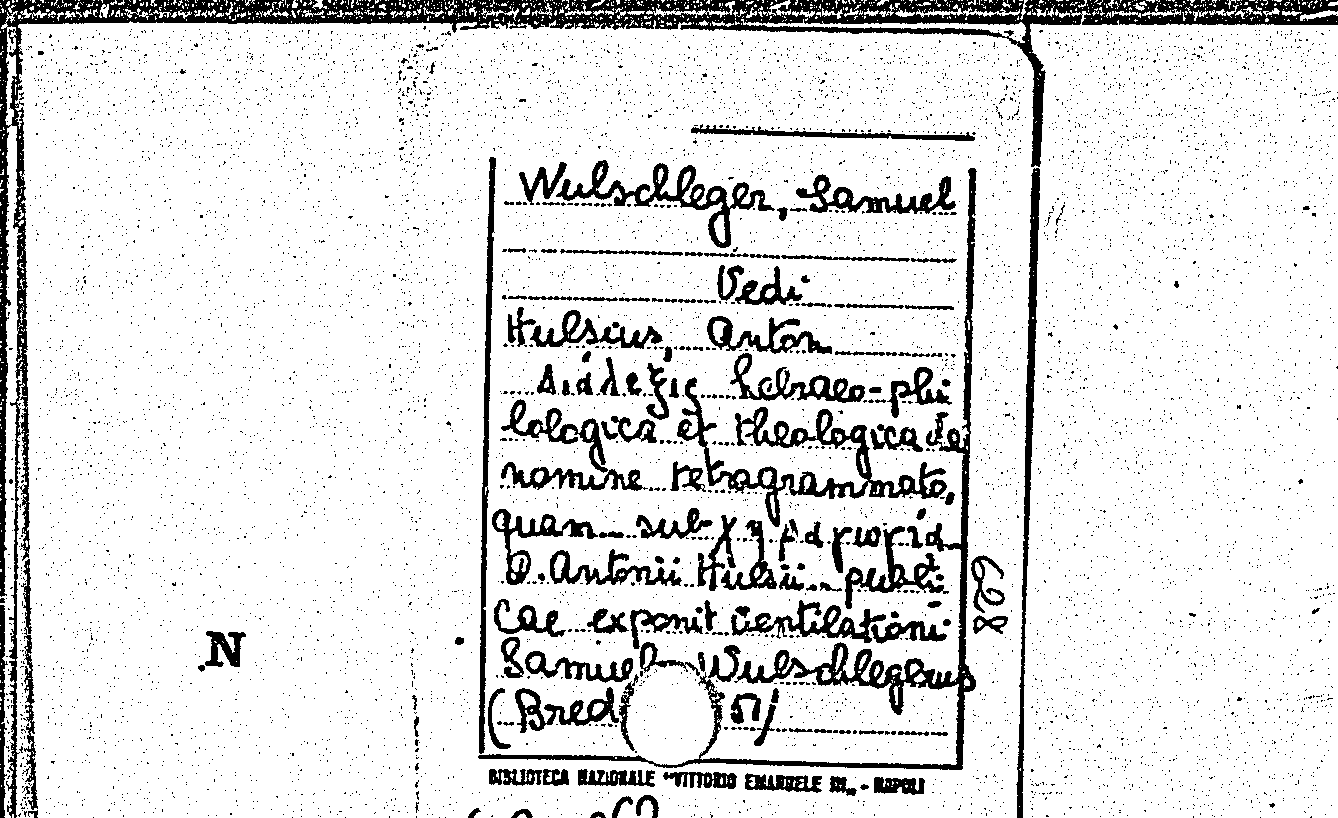 Wulschleger, Samuel
Vedi
Hulsius, Anton
Διάλεξις hebraeo-phi
lologica et theologica de
nomine tetragrammato,
quam sub
D. Antonii Hulsii publi
cae exponit ventilationi
Samuel Wulschlegerus
(Bred
N
BIBLIOTECA NAZIONALE "VITTORIO EMANUELE III" - NAPOLI